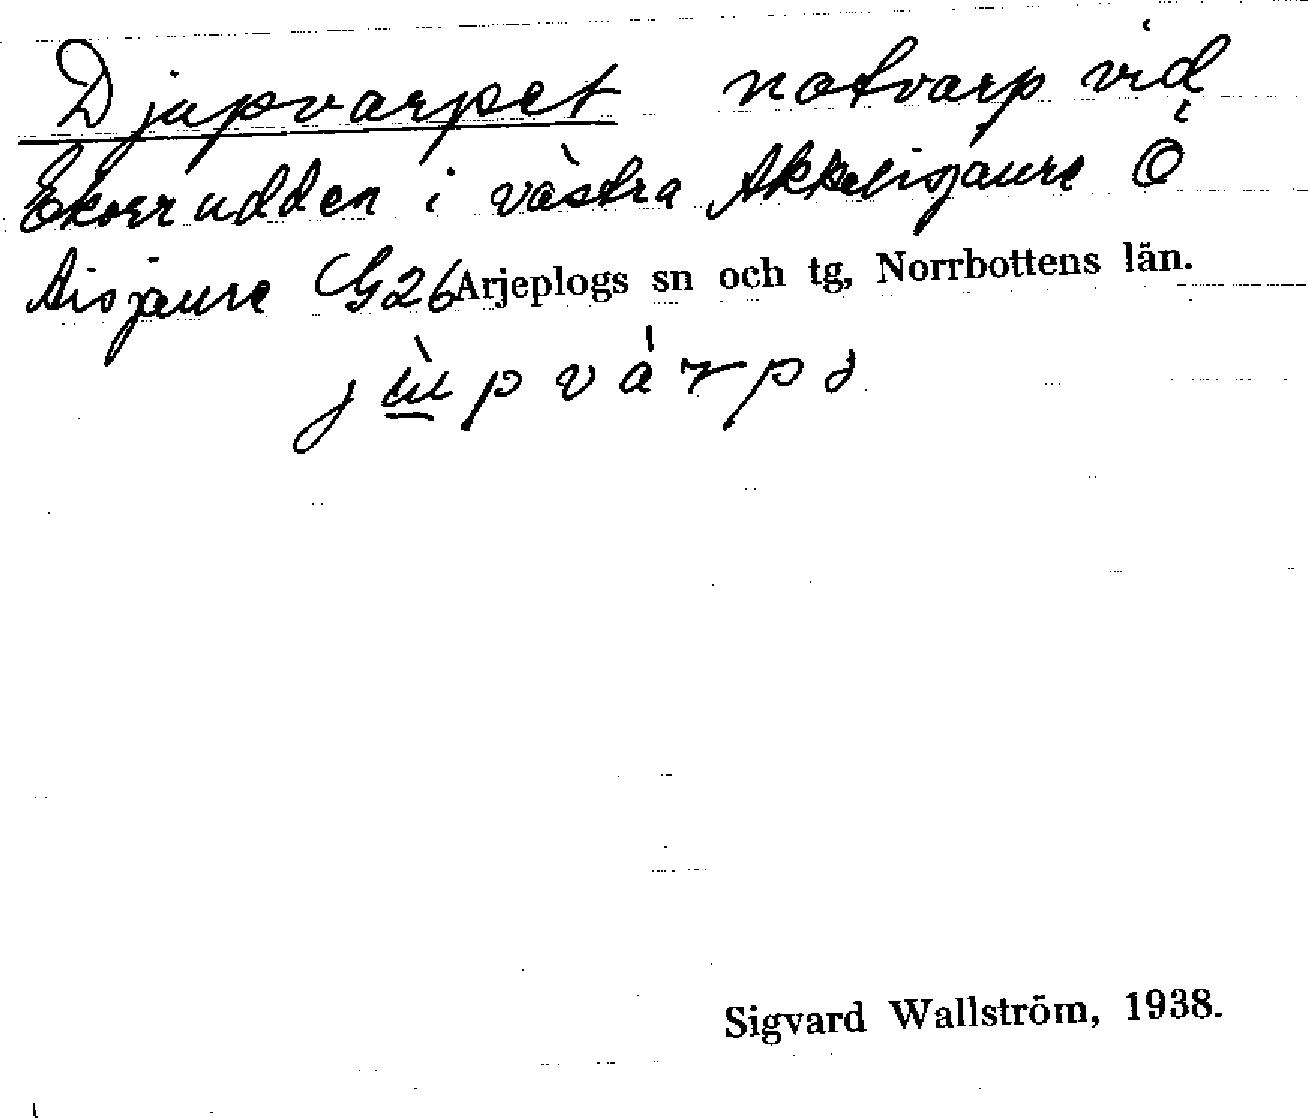 Djupvarpet notvarp vid
Ekorrudden i västra Akkelisjaure Ö
Aisjaure G26 Arjeplogs sn och tg, Norrbottens län.
Sigvard Wallström, 1938.